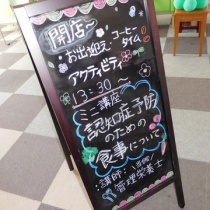 開店〜
・お出迎え・コーヒー
タイム
アクティビティ
13:30〜
ミニ講座
認知症予防
のための
食事について
・講師:
管理栄養士